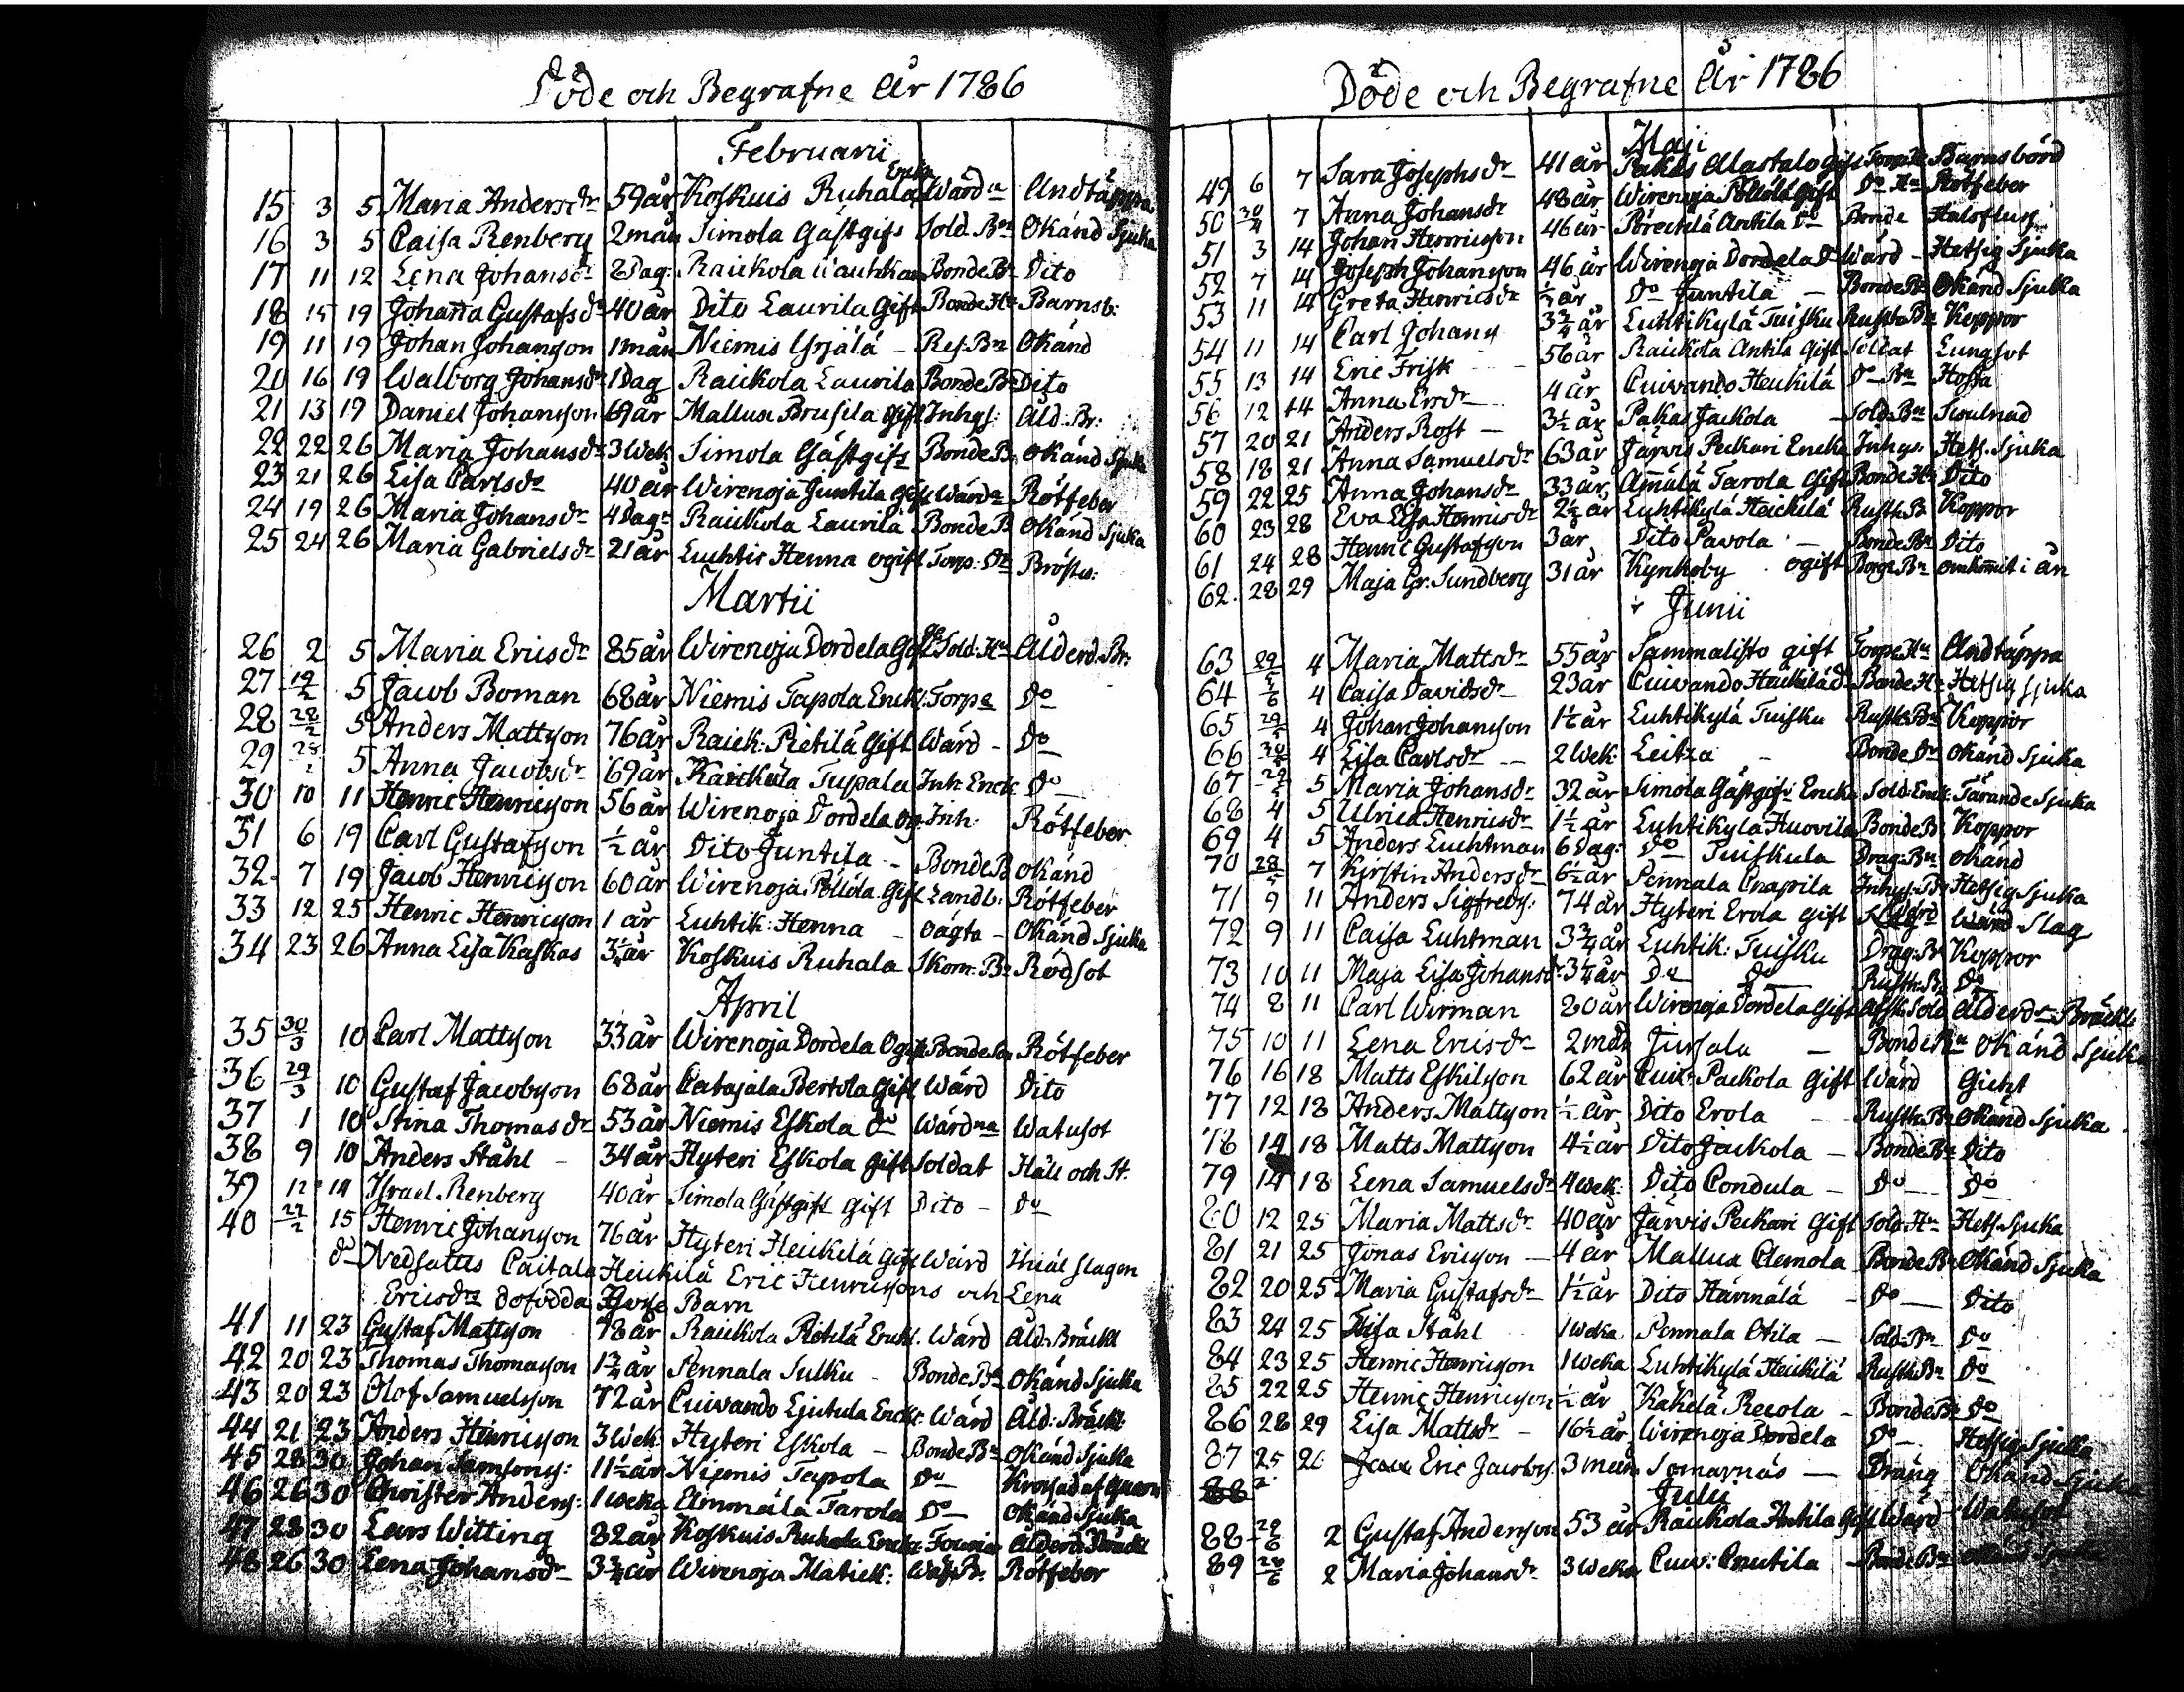 Döde och Begrafne År 1786
Februarii
15 3 5 Maria Andersdr 59 år Koskuis Ruhala Encka Wärdna Andtäppa
16 3 5 Caisa Renberg 2 mån Simola Gästgifv Sold. Bn Okänd Sjuka
17 11 12 Lena Johansdr 2 Dag: Raickola Bonde Bn Dito
18 15 19 Johanna Gustafsdr 40 år Dito Laurila Gift Bonde Hu Barnsb:
19 11 19 Johan Johansson 1 mån Niemis Yrjälä - Res. Bn Okänd
20 16 19 Walborg Johansdr 1 Dag Raickola Laurila Bonde Bn Dito
21 13 19 Daniel Johansson 69 år Mallusa Brusila Gift Inhys: Åld. Br:
22 22 26 Maria Johansdr 3 Wek Simola Gästgifv Bonde B. Okänd Sjuka
23 21 26 Lisa Carlsdr 40 år Wirenoja Juntila Gift Wärdn Rötfeber
24 19 26 Maria Johansdr 4 Dagr Raickola Laurila Bonde B Okänd Sjuka
25 24 26 Maria Gabrielsdr 21 år Luhtic Henna ogift Torp. Dr Bröstv:
Martii
26 2 5 Maria Ericsdr 85 år Wirenoja Dordela Gift Sold. Hu Ålderd. Br:
27 19/2 5 Jacob Boman 68 år Niemis Tapola Enckl. Torpe Do
28 28/2 5 Anders Mattson 76 år Raick: Pietilä Gift Wärd - Do
29 5 Anna Jacobsdr 69 år Raickola Tupala Inh. Enck Do
30 10 11 Henric Henricson 56 år Wirenoja Dordela Og. Inh. Rötfeber
31 6 19 Carl Gustafson ½ år Dito Juntila - Bonde B Okänd
32 7 19 Jacob Henricson 60 år Wirenoja Pöllölä Gift Landb: Rötfeber
33 12 25 Henric Henricson 1 år Luhtik: Henna - oägta - Okänd Sjuka
34 23 26 Anna Lisa Kaskas 3¼ år Koskuis Ruhala Skom. Bn Rödsot
April
35 30/3 10 Carl Mattson 33 år Wirenoja Dordela Ogift Bonde Son Rötfeber
36 29/3 10 Gustaf Jacobson 68 år Catajala Bertola Gift Wärd Dito
37 1 10 Stina Thomasdr 53 år Niemis Eskola Do Wärdna Watusot
38 9 10 Anders Ståhl - 34 år Hyteri Eskola gift Soldat Håll och St.
39 12 14 Israel Renberg 40 år Simola Gästgift gift Dito - Do
40 27/2 15 Henric Johanson 76 år Hyteri Heickilä Gift Wärd Ihiälslagen
do Nedsattes Caitala Heickilä Eric Henricsons och Lena
Ericsdrs dofödda Barn
41 11 23 Gustaf Mattson 78 år Raickola Pietilä Enckl. Wärd Åld: Bräckl
42 20 23 Thomas Thomasson 1¾ år Pennala Sulku - Bonde Bn Okänd Sjuka
43 20 23 Olof Samuelsson 72 år Cuivando Ljutula Enckl. Wärd Åld: Bräckl
44 21 23 Anders Henricson 3 Wek Hyteri Eskola - Bonde Bn Okänd Sjuka
45 28 30 Johan Samsons: 11½ år Niemis Tapola Do Krossad af Quarn
46 26 30 Christer Anders: 1 Weka Ämmälä Tarola Do - Okänd Sjuka
47 28 30 Lars Witting 82 år Koskuis Ruhala Enckl Fourier Ålderd. Bräckl
48 26 30 Lena Johansdr 3¾ år Wirenoja Matick: Rötfeber
Döde och Begrafne År 1786
Maji
49 6 7 Sara Josephsdr 41 år Pakas Alastalo gift Torp Hu Barnsbörd
50 30/4 7 Anna Johansdr 48 år Wirenoja Pöllölä Gift Do Hu Rötfeber
51 3 14 Johan Henricsson 46 år Antila Do Bonde Halsfluss
52 7 14 Joseph Johansson 46 år Wirenoja Dordela Do Wärd - Hetsig Sjuka
53 11 14 Greta Henricsdr ½ år Do Juntila - Bonde Bn Okänd Sjuka
54 11 14 Carl Johans 3¾ år Luhtikylä Tuisku Rusth Bn Koppor
55 13 14 Eric Frisk 56 år Raickola Antila Gift Soldat Lungsot
56 12 14 Anna Ersdr 4 år Cuivando Heickilä Do Bn Hosta
57 20 21 Anders Rost - 3½ år Pakas Jackola - Sold. Bn
58 18 21 Anna Samuelsdr 63 år Järvis Peckari Encka Inhys. Hets. Sjuka
59 22 25 Anna Johansdr 33 år Ämälä Tarola Gift Bonde Hu Dito
60 23 28 Eva Lisa Henricsdr 2½ år Luhtikylä Heickilä Rusth. B Koppor
61 24 28 Henric Gustafsson 3 år Dito Pavola - Bonde Bn Dito
62 28 29 Maja Gr. Sundberg 31 år Kynkoby ogift omkommit i ån
Junii
63 29/5 4 Maria Mattsdr 55 år Sammalisto gift Torpe Hu Andtäppa
64 4 Caisa Davidsdr 23 år Cuivando Heickilä Do Bonde H Hetsig sjuka
65 29/5 4 Johan Johansson 1½ år Luhtikylä Tuisku Rusth. Bn Koppor
66 4 Lisa Carlsdr - 2 Wek: Leitza - Bonde Dr Okänd Sjuka
67 5 Maria Johansdr 32 år Simola Gästgifv Encka Sold. Enck. Tärande Sjuka
68 4 5 Ulrica Henricsdr 1½ år Luhtikylä Huovila Bonde B Koppor
69 4 5 Anders Luchtman 6 Dag: Do Tuiskula Drag: Bn Okänd
70 28/5 7 Kirstin Andersdr 6½ år Pennala Cnapila Inhys. Bn Hetsig Sjuka
71 9 11 Anders Sigfreds: 74 år Hyteri Erola gift Wärd Slag
72 9 11 Caisa Luhtman 3¾ år Luhtik: Tuisku Drag: Bn Koppor
73 10 11 Maja Lisa Johansdr 3¼ år Do Do Rusth. Bn Do
74 8 11 Carl Wirman 80 år Wirenoja Dordela Gift Afsk. Sold Ålderds Bräckl.
75 10 11 Lena Ericsdr 2 mån Jursala - Bonde Bn Okänd Sjuka
76 16 18 Matts Eskilson 62 år Cuiv: Packola Gift Wärd Gickt
77 12 18 Anders Mattson ½ år Dito Erola - Rusth. Bn Okänd Sjuka
78 14 18 Matts Mattson 4½ år Dito Jackola - Bonde Bn Dito
79 14 18 Lena Samuelsdr 4 wek: Dito Pondula - Do Do
80 12 25 Maria Mattsdr 40 år Järvis Peckari Gift Sold. Hu Hets. Sjuka
81 21 25 Jonas Ericson - 4 år Mallusa Clemola Bonde Bn Okänd Sjuka
82 20 25 Maria Gustafsdr 1½ år Dito Härmälä - Do Dito
83 24 25 Lisa Ståhl 1 Weka Pennala Otila - Sold. Bn Do
84 23 25 Henric Henricson 1 Weka Luhtikylä Heickilä Rusth. Bn Do
85 22 25 Henric Henricson ½ år Kakela Recola - Bonde Bn Do
86 28 29 Lisa Mattsdr - 16½ år Wirenoja Dordela Do - Hetsig Sjuka
87 25 Eric Jacobs. 3 mån Somarnäs - Dräng Okänd Sjuka
Julii
88 28/6 2 Gustaf Anderson 53 år Raickola Antila Gift Wärd Watusot
89 28/6 2 Maria Johansdr 3 Weka Cuiv: Cnutila - Bonde Bn Okänd Sjuka